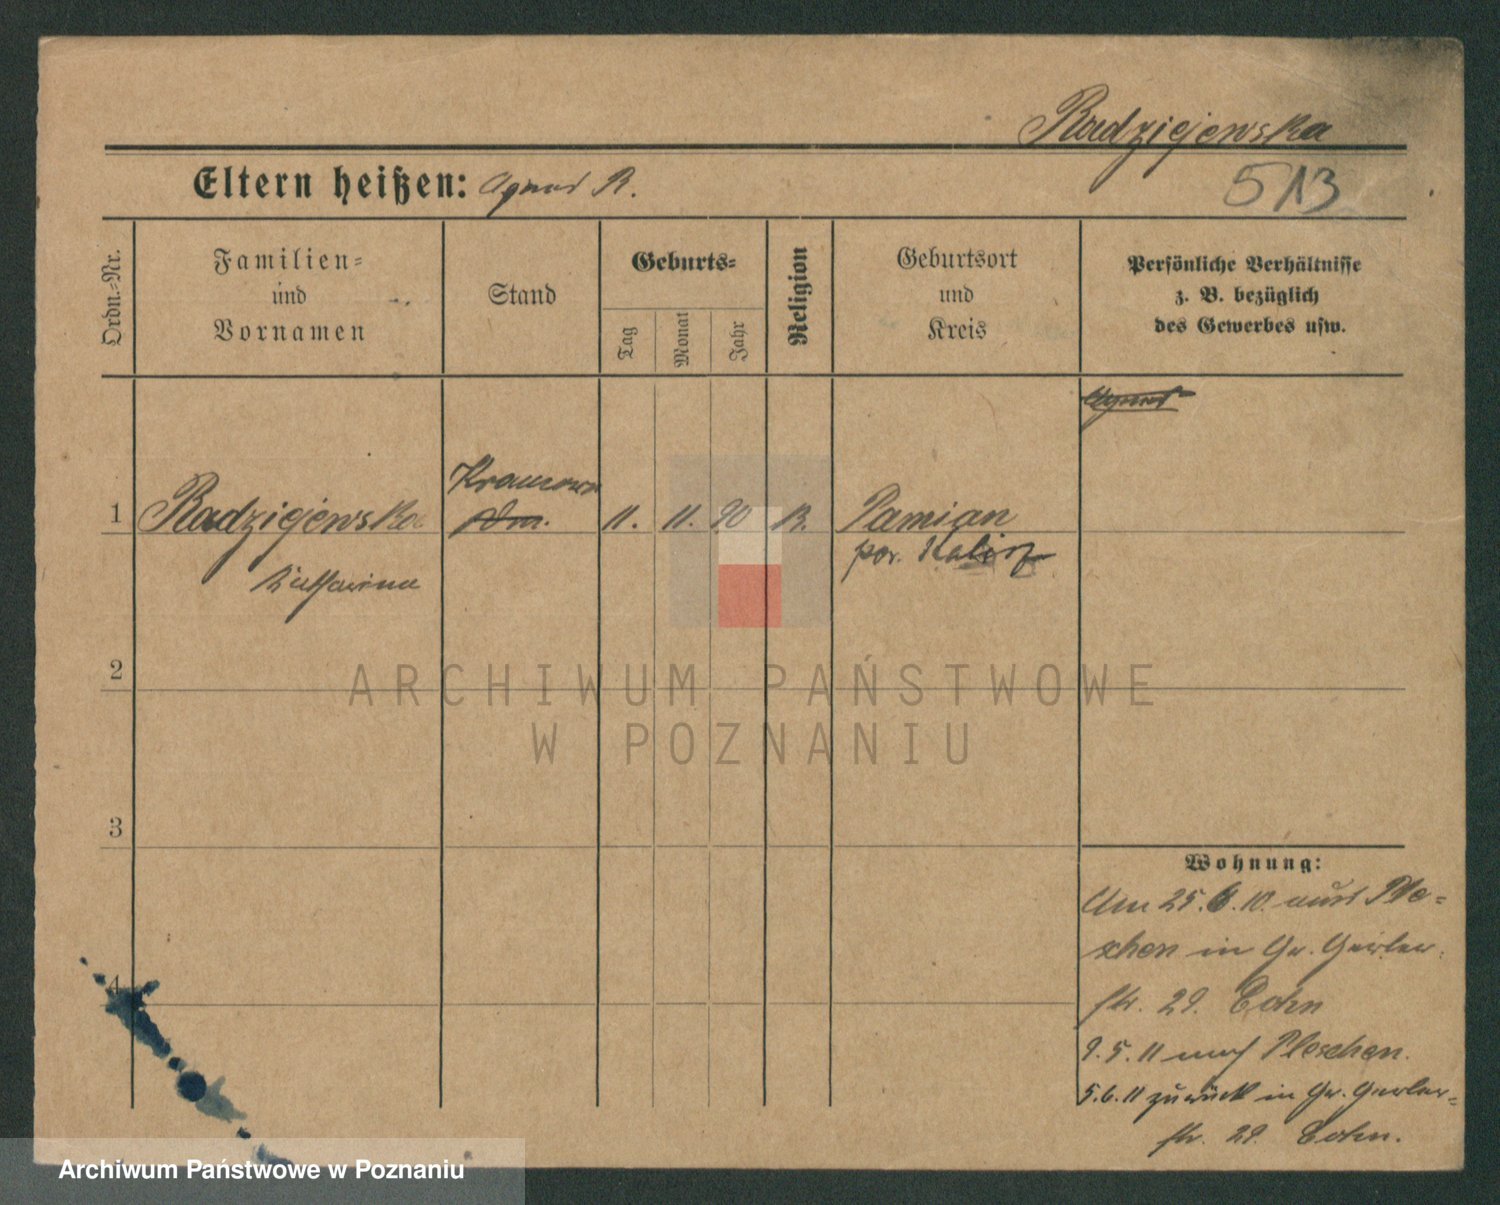 Radziejewska
513
Eltern heißen: Agnes R.
Ordn.-Nr.
Familien-
und
Vornamen
Stand
Geburts-
Tag
Monat
Jahr
Religion
Geburtsort
und
Kreis
Persönliche Verhältnisse
z. B. bezüglich
des Gewerbes usw.
1
Radziejewska
Katharina
11. 11. 90
Pamian
2
3
4
Wohnung:
Am 25.6.10. aus Ple-
schen in Gr. Gerber-
str. 29. Cohn
9.5.11 nach Pleschen.
5.6.11 zurück in Gr. Gerber-
str. 29. Cohn.
ARCHIWUM PAŃSTWOWE
W POZNANIU
Archiwum Państwowe w Poznaniu